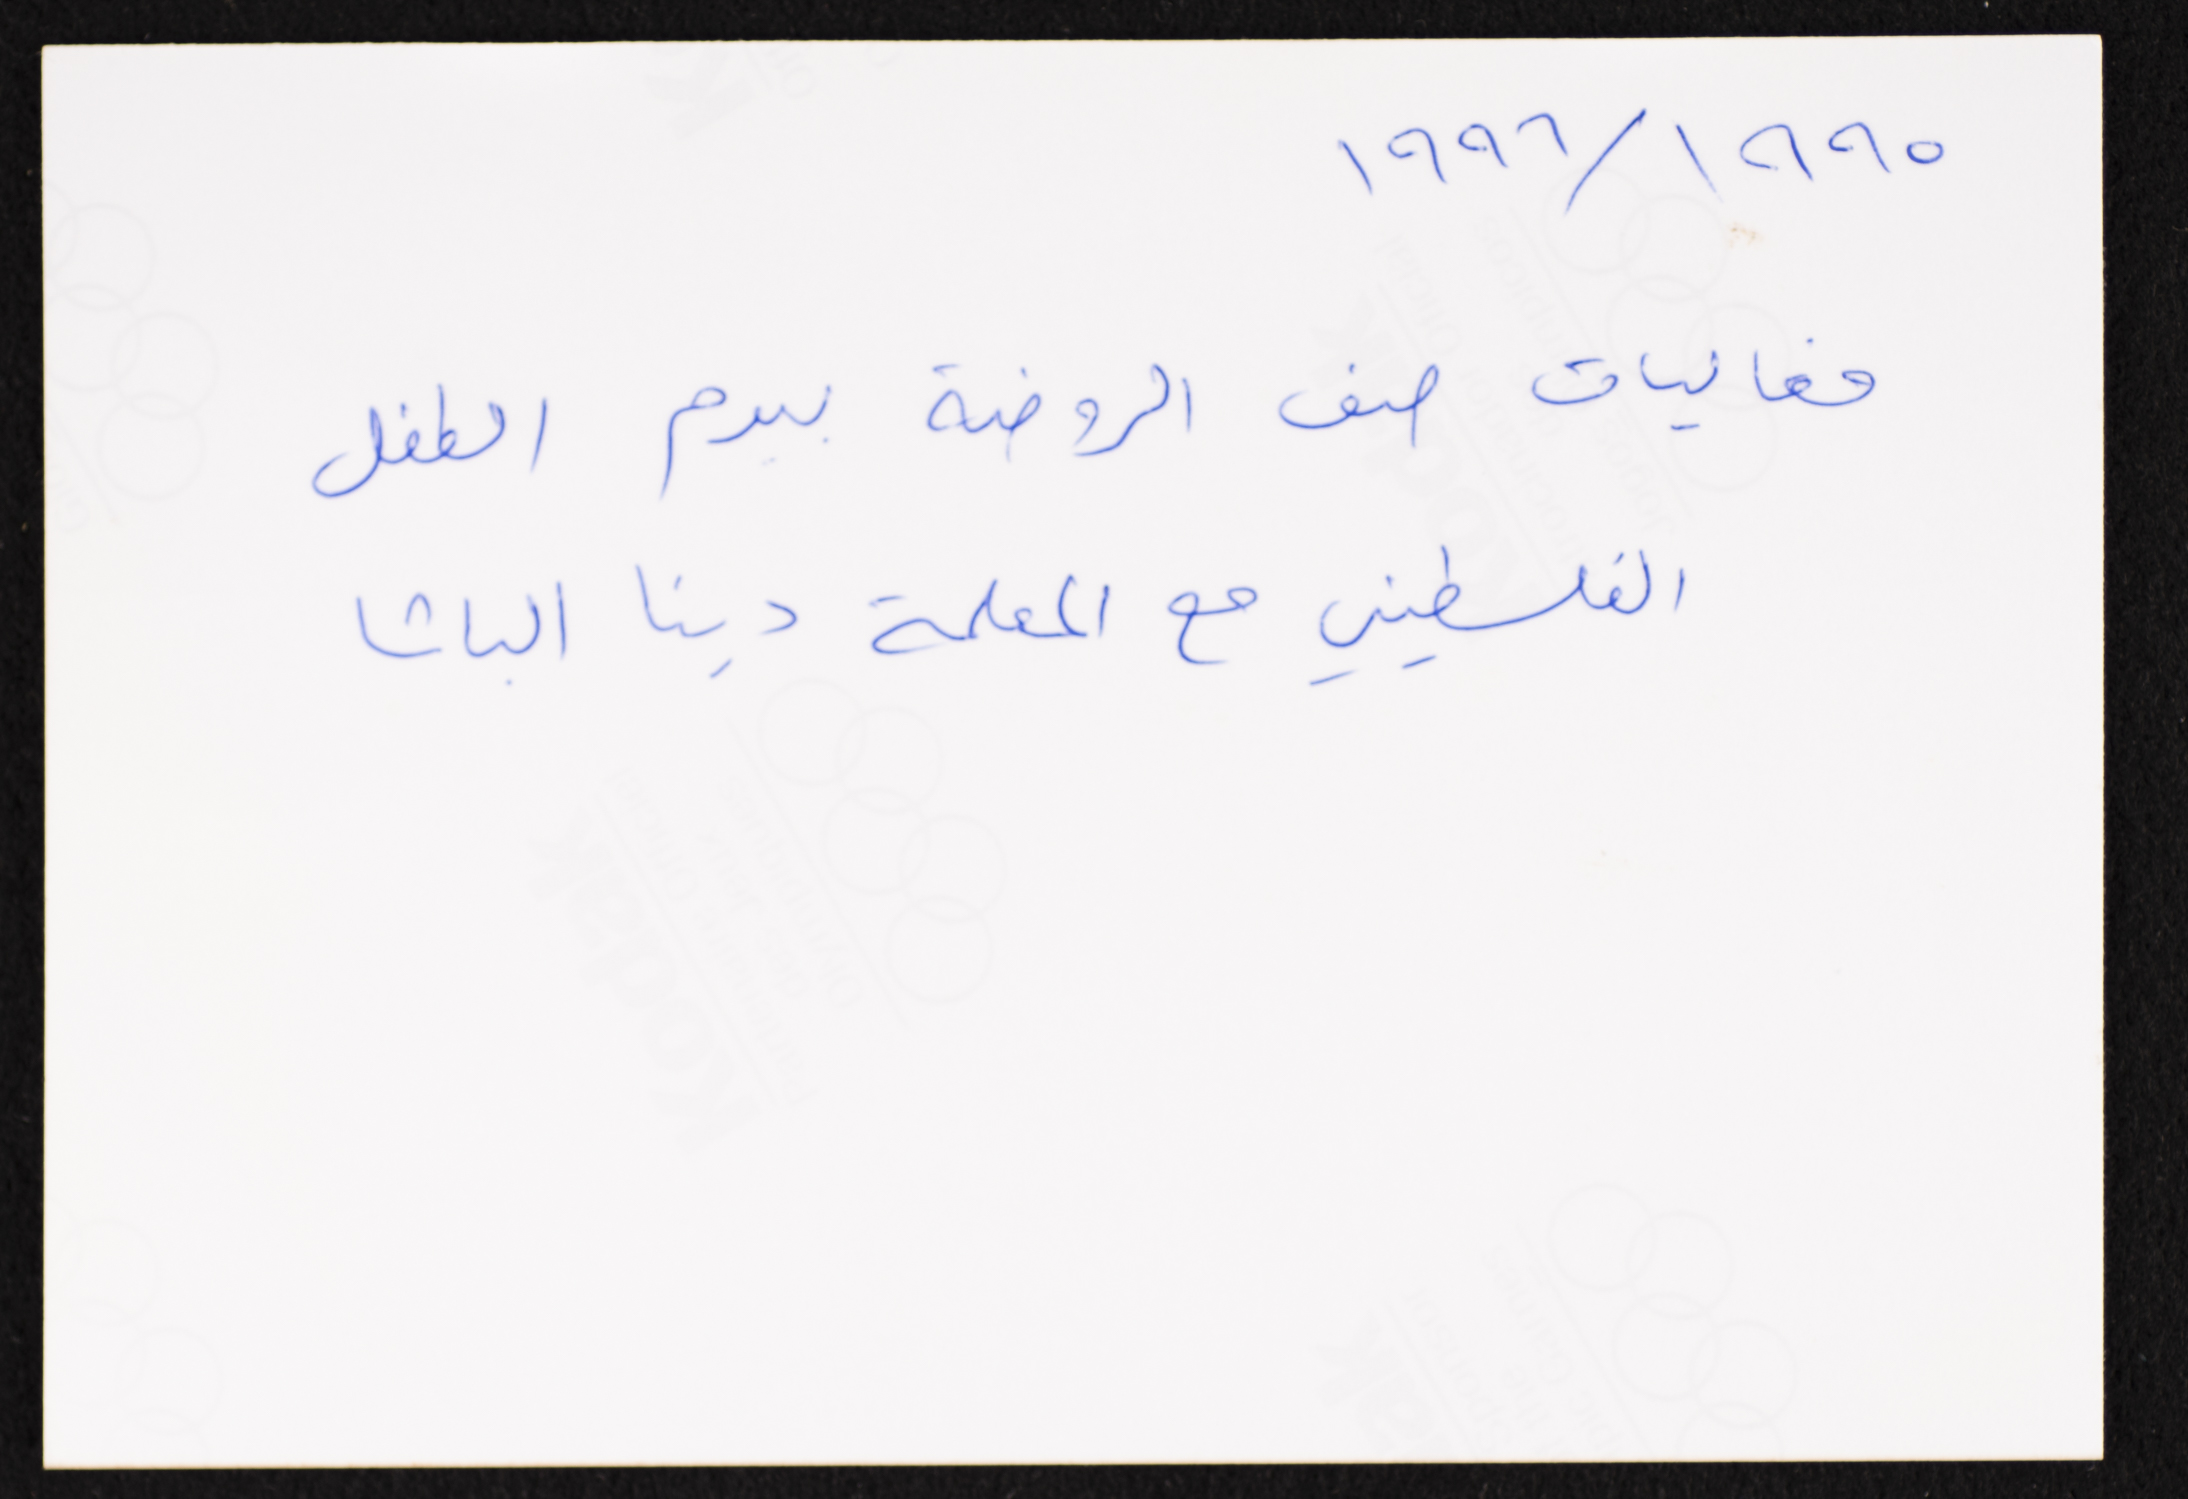 ١٩٩٦/١٩٩٥
فعاليات صف الروضة بيوم الطفل
الفلسطيني مع المعلمة دينا الباشا
Kodak